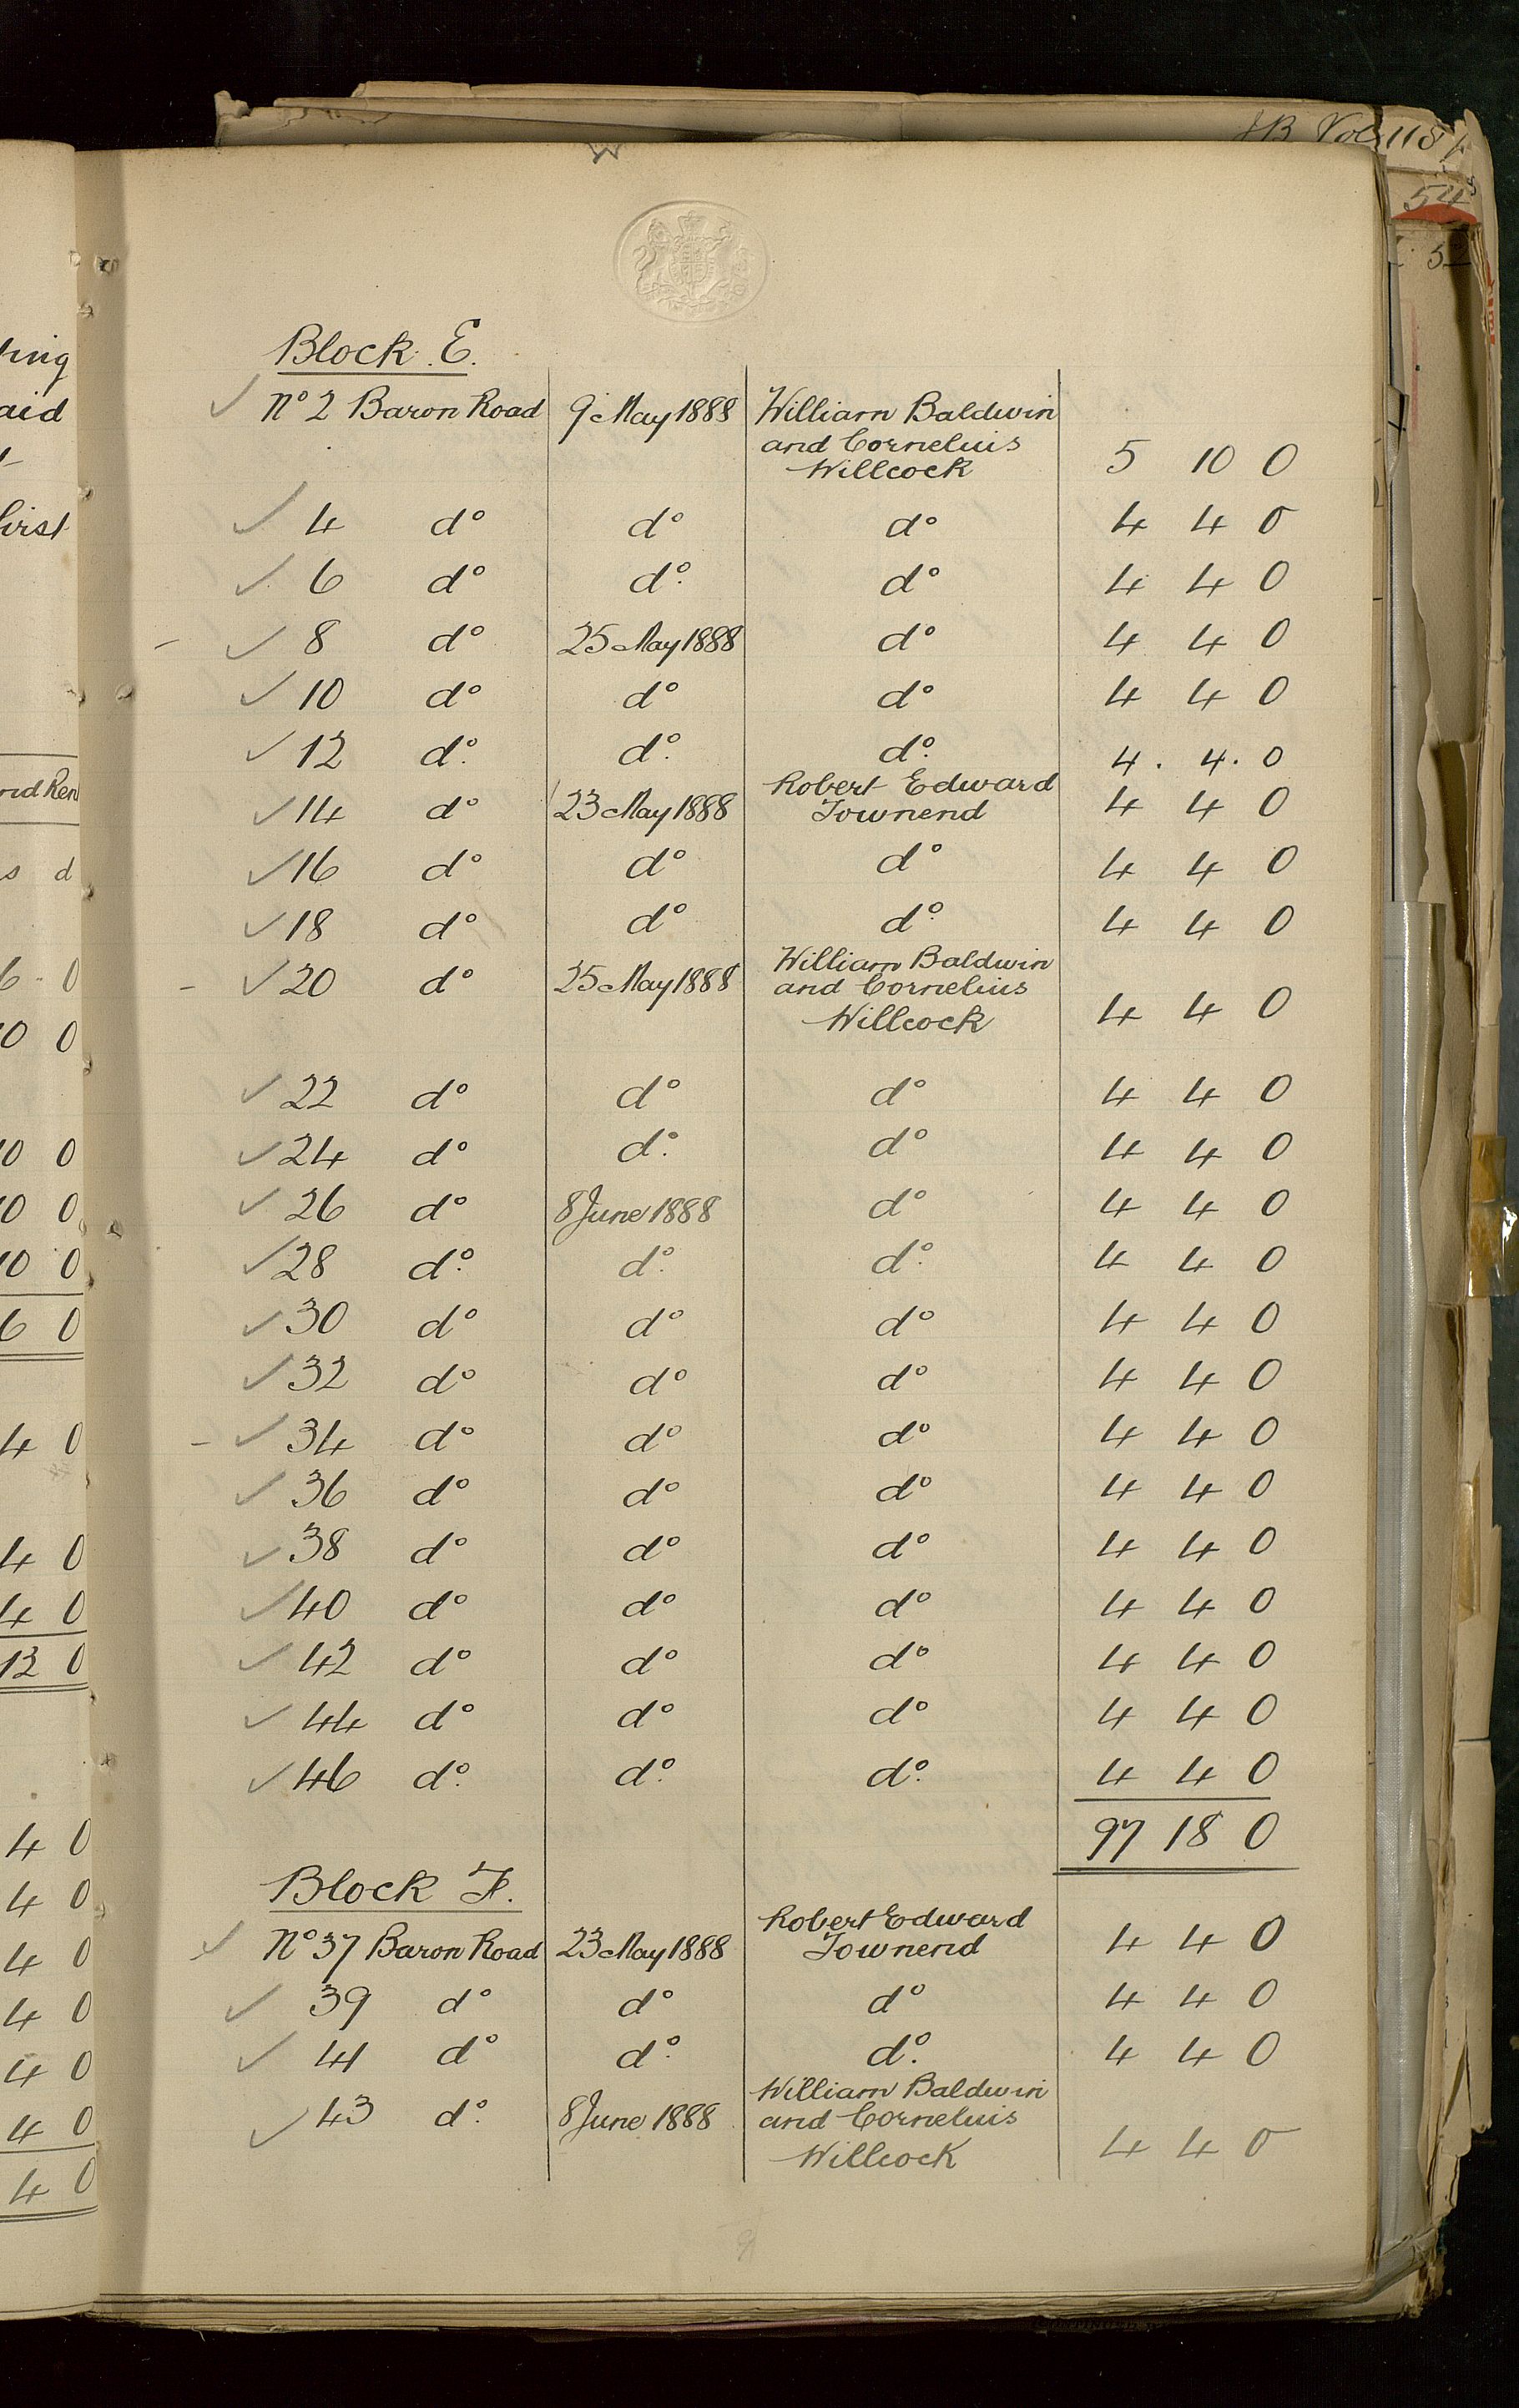 JB Vol 118
54
Block. E.
No 2 Baron Road 9 May 1888 William Baldwin
and Cornelius
Willcock 5 10 0
4 do do do 4 4 0
6 do do do 4 4 0
8 do 25 May 1888 do 4 4 0
10 do do do 4 4 0
12 do. do. do. 4. 4. 0
14 do 23 May 1888 Robert Edward
Townend 4 4 0
16 do do do 4 4 0
18 do do do 4 4 0
20 do 25 May 1888 William Baldwin
and Cornelius
Willcock 4 4 0
22 do do do 4 4 0
24 do do. do 4 4 0
26 do 8 June 1888 do 4 4 0
28 do. do. do. 4 4 0
30 do do do 4 4 0
32 do do do 4 4 0
34 do do do 4 4 0
36 do do do 4 4 0
38 do do do 4 4 0
40 do do do 4 4 0
42 do do do 4 4 0
44 do do do 4 4 0
46 do. do. do. 4 4 0
97 18 0
Block F.
No 37 Baron Road 23 May 1888 Robert Edward
Townend 4 4 0
39 do do do 4 4 0
41 do do. do. 4 4 0
43 do. 8 June 1888 William Baldwin
and Cornelius
Willcock 4 4 0